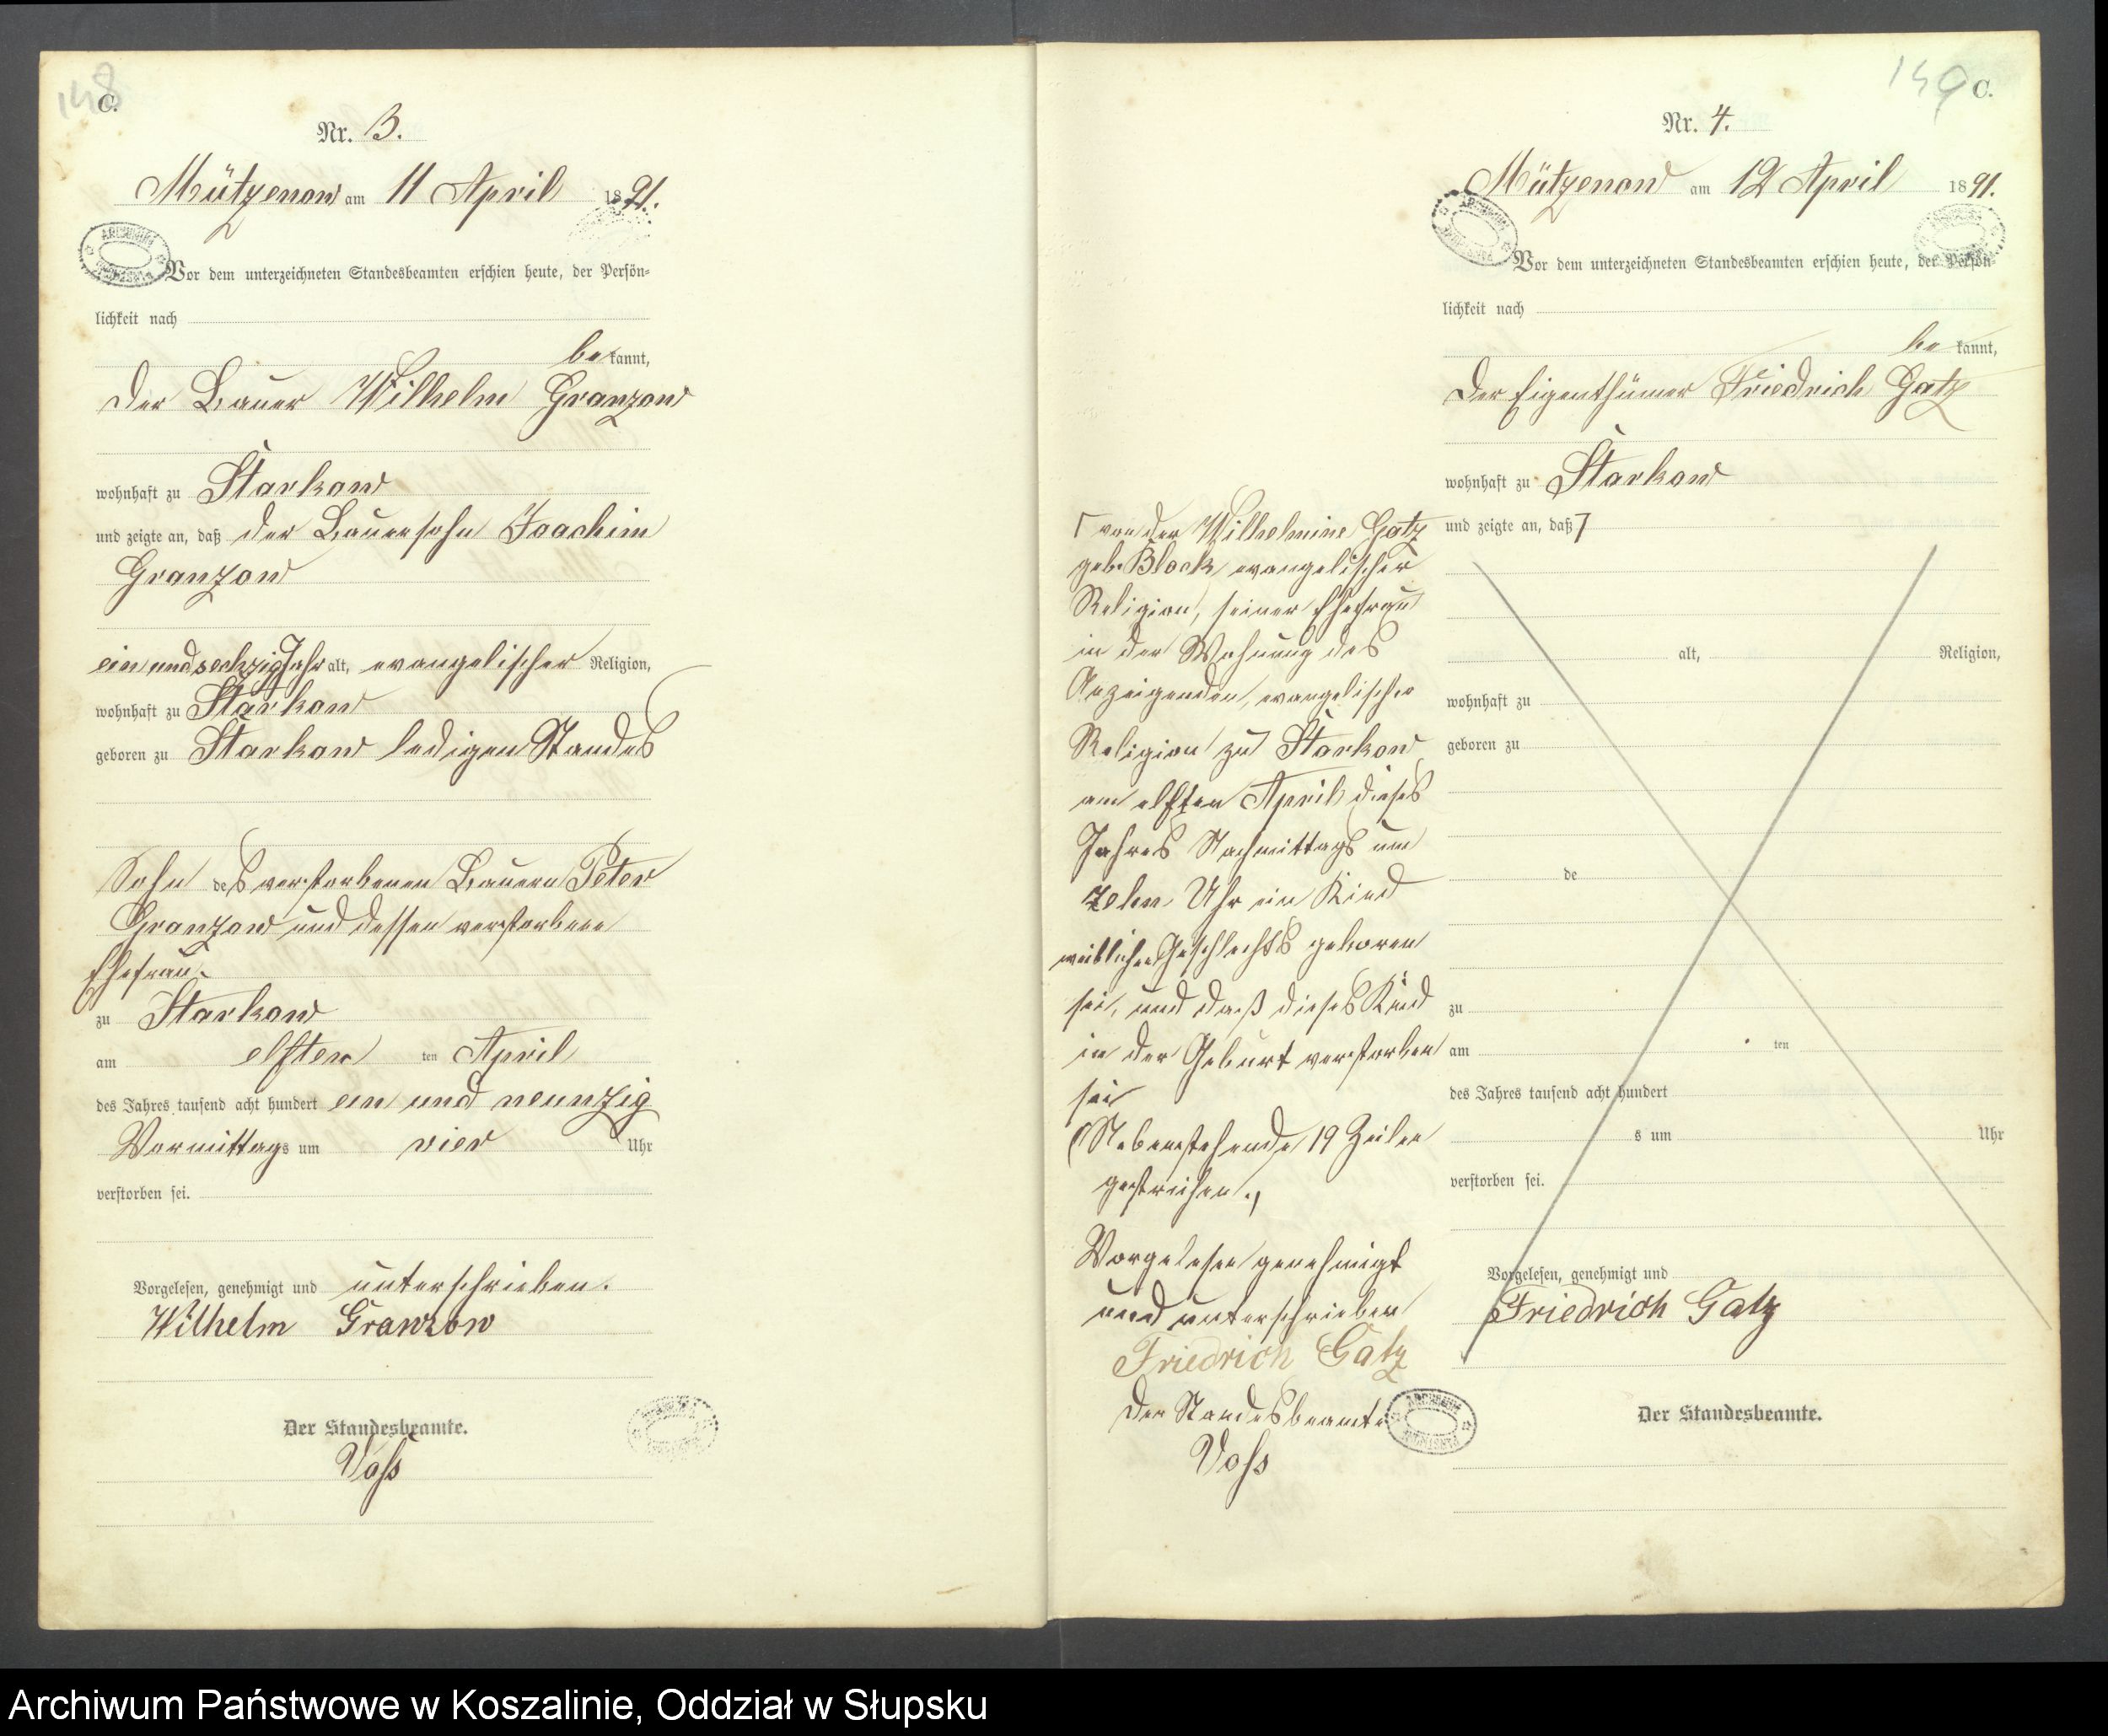 148
C.
Nr. 3.
Mützenow am 11 April 1891.
Vor dem unterzeichneten Standesbeamten erschien heute, der Persön-
lichkeit nach
bekannt,
der Bauer Wilhelm Granzow
wohnhaft zu Starkow
und zeigte an, daß der Bauersohn Joachim
Granzow
ein und sechzig Jahr alt, evangelischer Religion,
wohnhaft zu Starkow
geboren zu Starkow ledigen Standes
Sohn des verstorbenen Bauern Peter
Granzow und dessen verstorbene
Ehefrau.
zu Starkow
am elften ten April
des Jahres tausend acht hundert ein und neunzig
Vormittags um vier Uhr
verstorben sei.
Vorgelesen, genehmigt und unterschrieben.
Wilhelm Granzow
Der Standesbeamte.
Voß
149
C.
Nr. 4.
Mützenow am 12 April 1891.
Vor dem unterzeichneten Standesbeamten erschien heute, der Persön-
lichkeit nach
bekannt,
Der Eigenthümer Friedrich Gatz
wohnhaft zu Starkow
und zeigte an, daß
alt, Religion,
wohnhaft zu
geboren zu
de
zu
am ten
des Jahres tausend acht hundert
s um Uhr
verstorben sei.
Vorgelesen, genehmigt und
Friedrich Gatz
Der Standesbeamte.
von der Wilhelmine Gatz
geb. Block evangelischer
Religion, seiner Ehefrau
in der Wohnung des
Anzeigenden, evangelischer
Religion zu Starkow
am elften April dieses
Jahres Nachmittags um
zehn Uhr ein Kind
weiblichen Geschlechts geboren
sei, und daß dieses Kind
in der Geburt verstorben
sei
(Nebenstehende 19 Zeilen
gestrichen.)
Vorgelesen genehmigt
und unterschrieben
Friedrich Gatz
Der Standesbeamte
Voß
Archiwum Państwowe w Koszalinie, Oddział w Słupsku